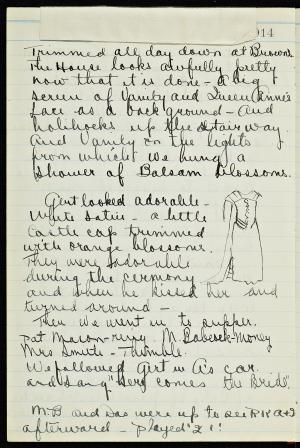 1914
Trimmed all day down at Brown's
The House looks awfully pretty
now that it is done - a big
screen of Vanity and Queen Anne's
lace - as a back ground - and
holihocks up the stairway
and Vanity on the lights
from which we hung a
Shower of Balsam Blossoms.
Gert looked adorable -
White Satin - a little
Castle cap trimmed
with orange blossoms.
They were adorable
during the cermony
and when he kissed her and
turned around -
Then we went in to supper.
Pat Macon - ring. M. Babcock - Money
Mrs Smith - Thimble.
We followed Girt in A's car.
and sang "Here comes the Bride".
M-B and Das were up to see
afterward - played "21"!